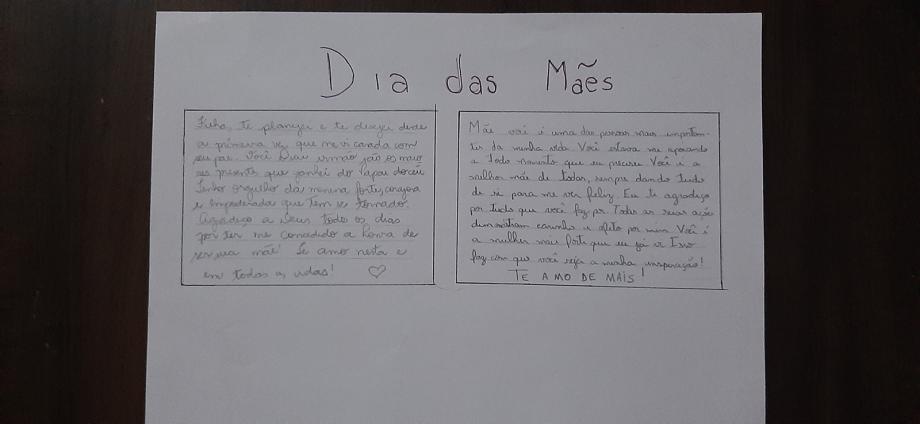 Dia das Mães
Filha, te planejei e te desejei desde
a primeira vez que me vi casada com
seu pai. Você e seu irmão são os maio
res presente que ganhei do Papai do céu
Tenho orgulho da menina forte, corajosa
e empoderada que tem se tornado.
Agradeço a Deus todo os dias
por ter me concedido a honra de
ser sua mãe! Te amo nesta e
em todas as vidas! ♡
Mãe você é uma das pessoas mais importan-
tes da minha vida. Você estava me apoiando
a todo momento que eu precisei. Você é a
melhor mãe de todas, sempre dando tudo
de si para me ver feliz. Eu te agradeço
por tudo que você faz por Todas as suas ações
demonstram carinho e afeto por mim Você é
a mulher mais forte que eu já vi Isso
faz com que você seja a minha inspiração!
TE AMO DE MAIS!